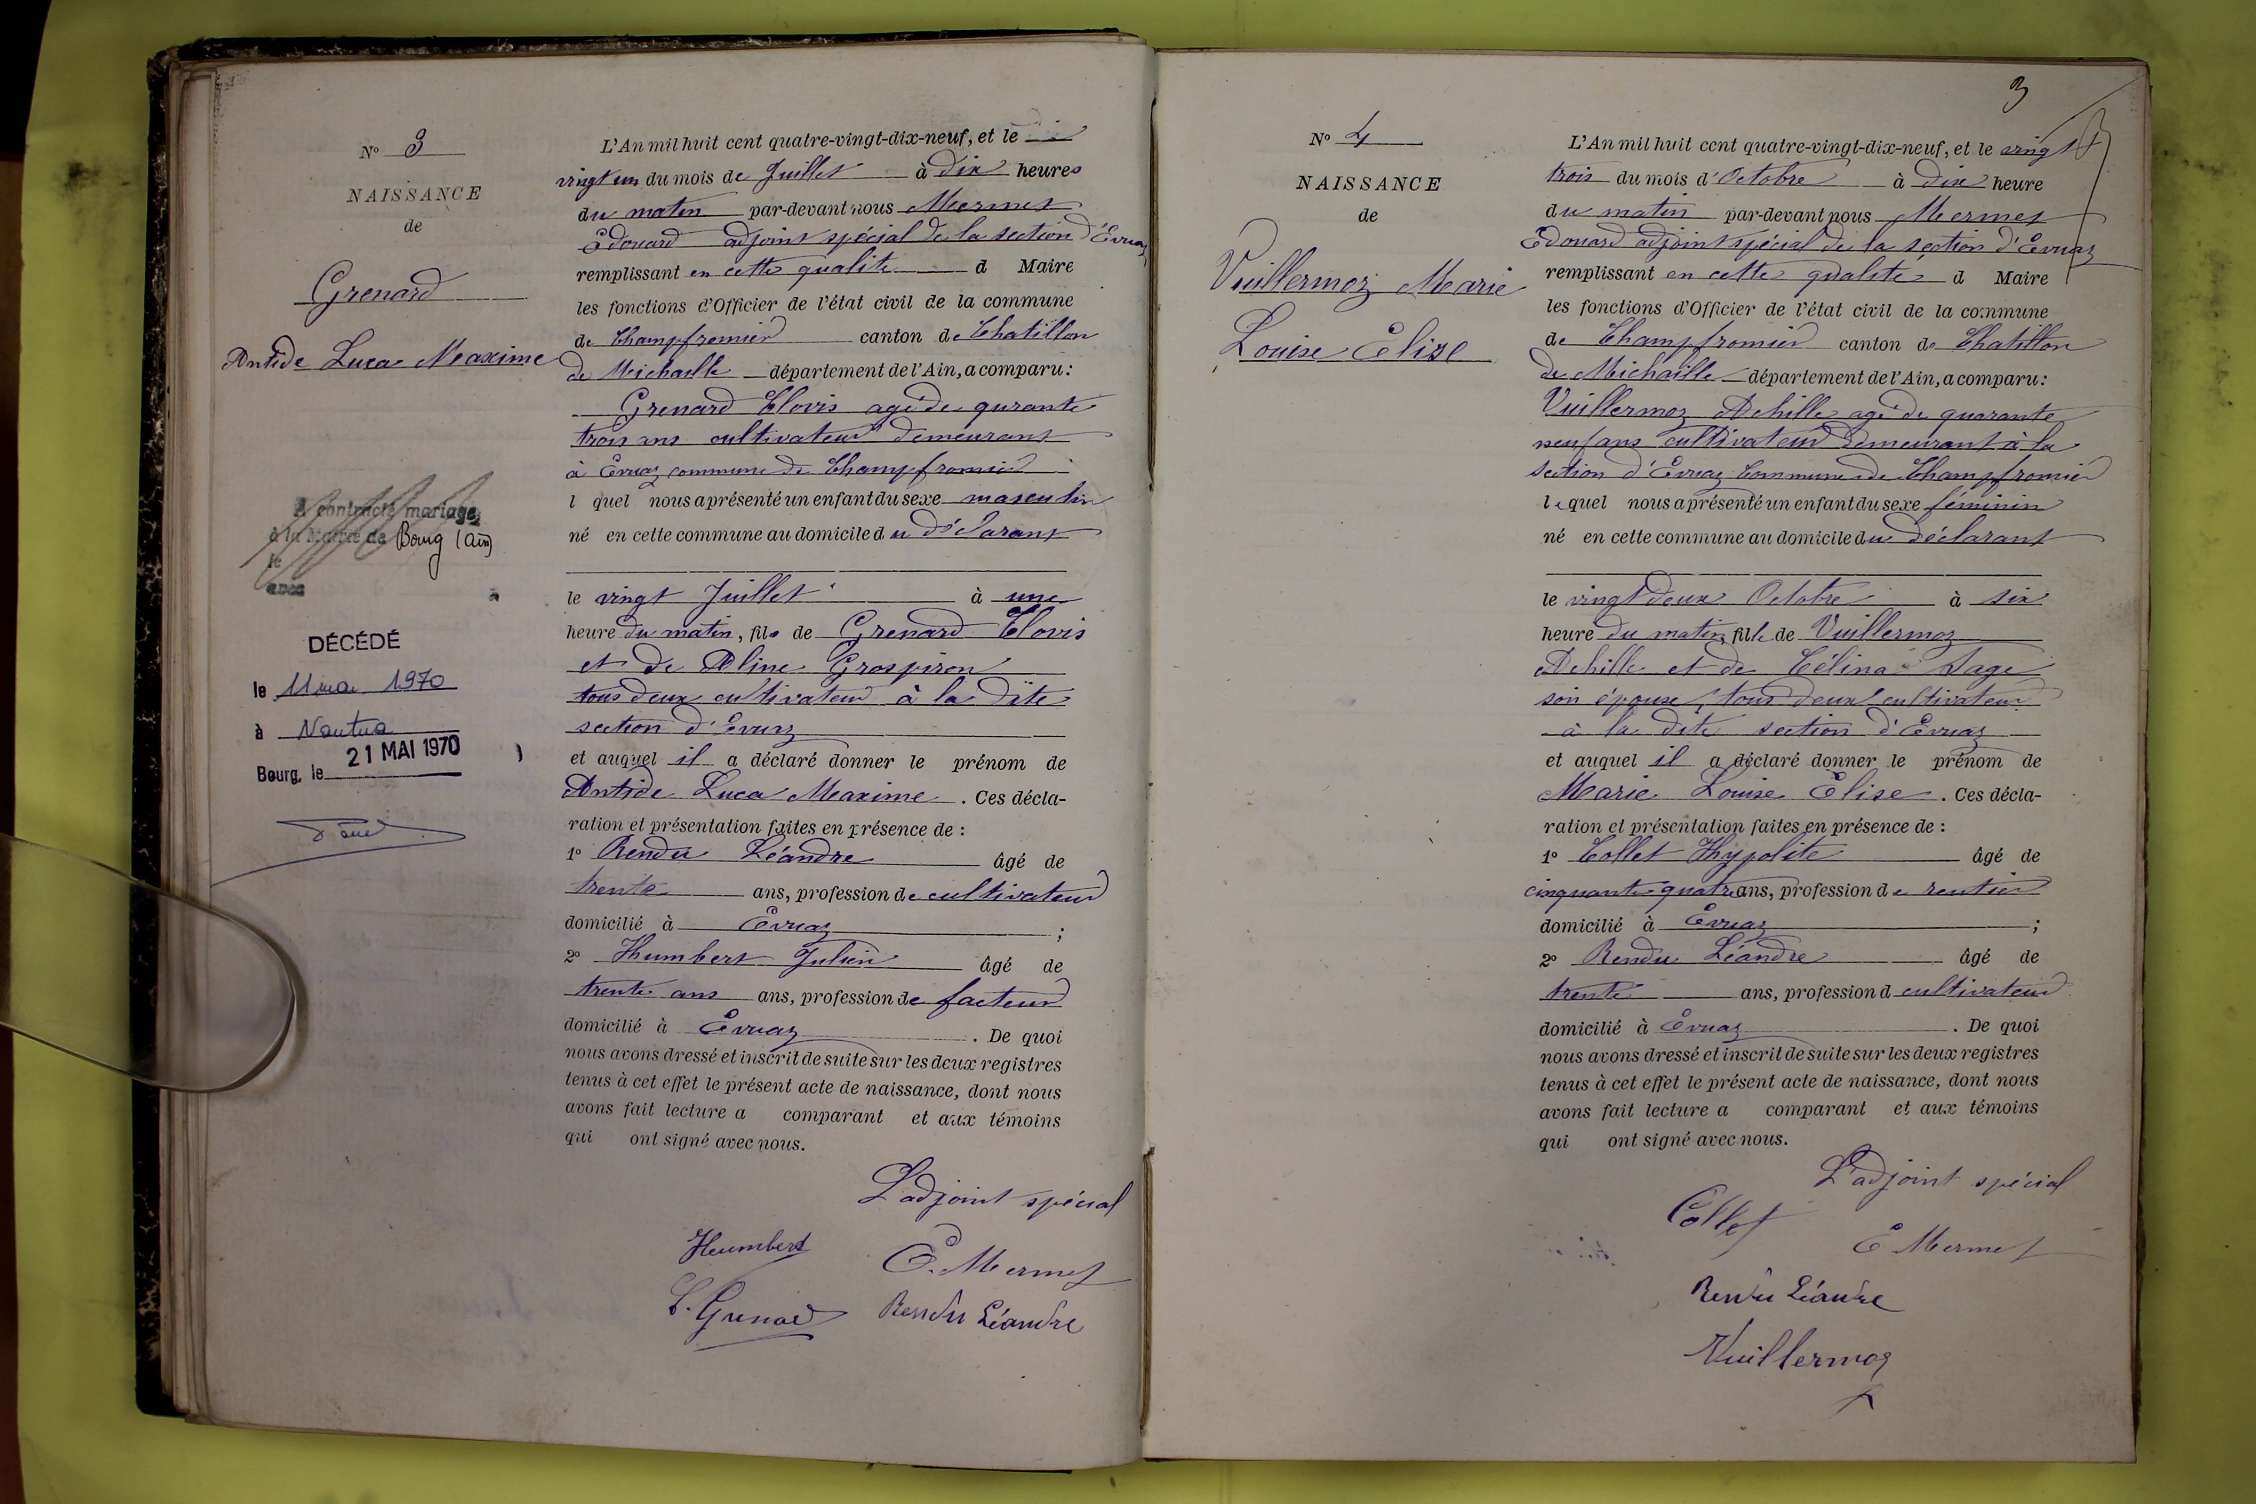 N° 3
NAISSANCE
de
Grenard
Antide Luca Maxime
A contracté mariage
à la Mairie de Bourg (Ain)
le
avec
DÉCÉDÉ
le 11 mai 1970
à Nantua
Bourg, le 21 MAI 1970
L'An mil huit cent quatre-vingt-dix-neuf, et le
vingt un du mois de Juillet à dix heures
du matin par-devant nous Mermet
Edouard adjoint spécial de la section d'Evuaz
remplissant en cette qualité d Maire
les fonctions d'Officier de l'état civil de la commune
de Champfromier canton de Chatillon
de Michaille département de l'Ain, a comparu:
Grenard Clovis agé de qurante
trois ans cultivateur demeurant
à Evuaz commune de Champfromier
l quel nous a présenté un enfant du sexe masculin
né en cette commune au domicile du déclarant
le vingt Juillet à une
heure du matin, fils de Grenard Clovis
et de Aline Grospiron
tous deux cultivateur à la dite
section d'Evuaz
et auquel il a déclaré donner le prénom de
Antide Luca Maxime. Ces décla-
ration et présentation faites en présence de :
1° Rendu Léandre âgé de
trente ans, profession de cultivateur
domicilié à Evuaz ;
2° Humbert Julien âgé de
trente ans ans, profession de facteur
domicilié à Evuaz . De quoi
nous avons dressé et inscrit de suite sur les deux registres
tenus à cet effet le présent acte de naissance, dont nous
avons fait lecture a comparant et aux témoins
qui ont signé avec nous.
L'adjoint spécial
Humbert E. Mermet
C. Grenard Rendu Léandre
3
N° 4
NAISSANCE
de
Vuillermoz Marie
Louise Elise
L'An mil huit cent quatre-vingt-dix-neuf, et le vingt
trois du mois d'Octobre à dix heure
du matin par-devant nous Mermet
Edouard adjoint spécial de la section d'Evuaz
remplissant en cette qualité d Maire
les fonctions d'Officier de l'état civil de la commune
de Champfromier canton de Chatillon
de Michaille département de l'Ain, a comparu:
Vuillermoz Achille agé de quarante
neuf ans cultivateur demeurant à la
section d'Evuaz Commune de Champfromier
lequel nous a présenté un enfant du sexe féminin
né en cette commune au domicile du déclarant
le vingt deux Octobre à six
heure du matin, fille de Vuillermoz
Achille et de Célina Sage
son épouse, tous deux cultivateur
à la dite section d'Evuaz
et auquel il a déclaré donner le prénom de
Marie Louise Elise. Ces décla-
ration et présentation faites en présence de :
1° Collet Hypolite âgé de
cinquante quatre ans, profession de rentier
domicilié à Evuaz ;
2° Rendu Léandre âgé de
trente ans, profession d cultivateur
domicilié à Evuaz . De quoi
nous avons dressé et inscrit de suite sur les deux registres
tenus à cet effet le présent acte de naissance, dont nous
avons fait lecture a comparant et aux témoins
qui ont signé avec nous.
L'adjoint spécial
Collet E Mermet
Rendu Léandre
Vuillermoz